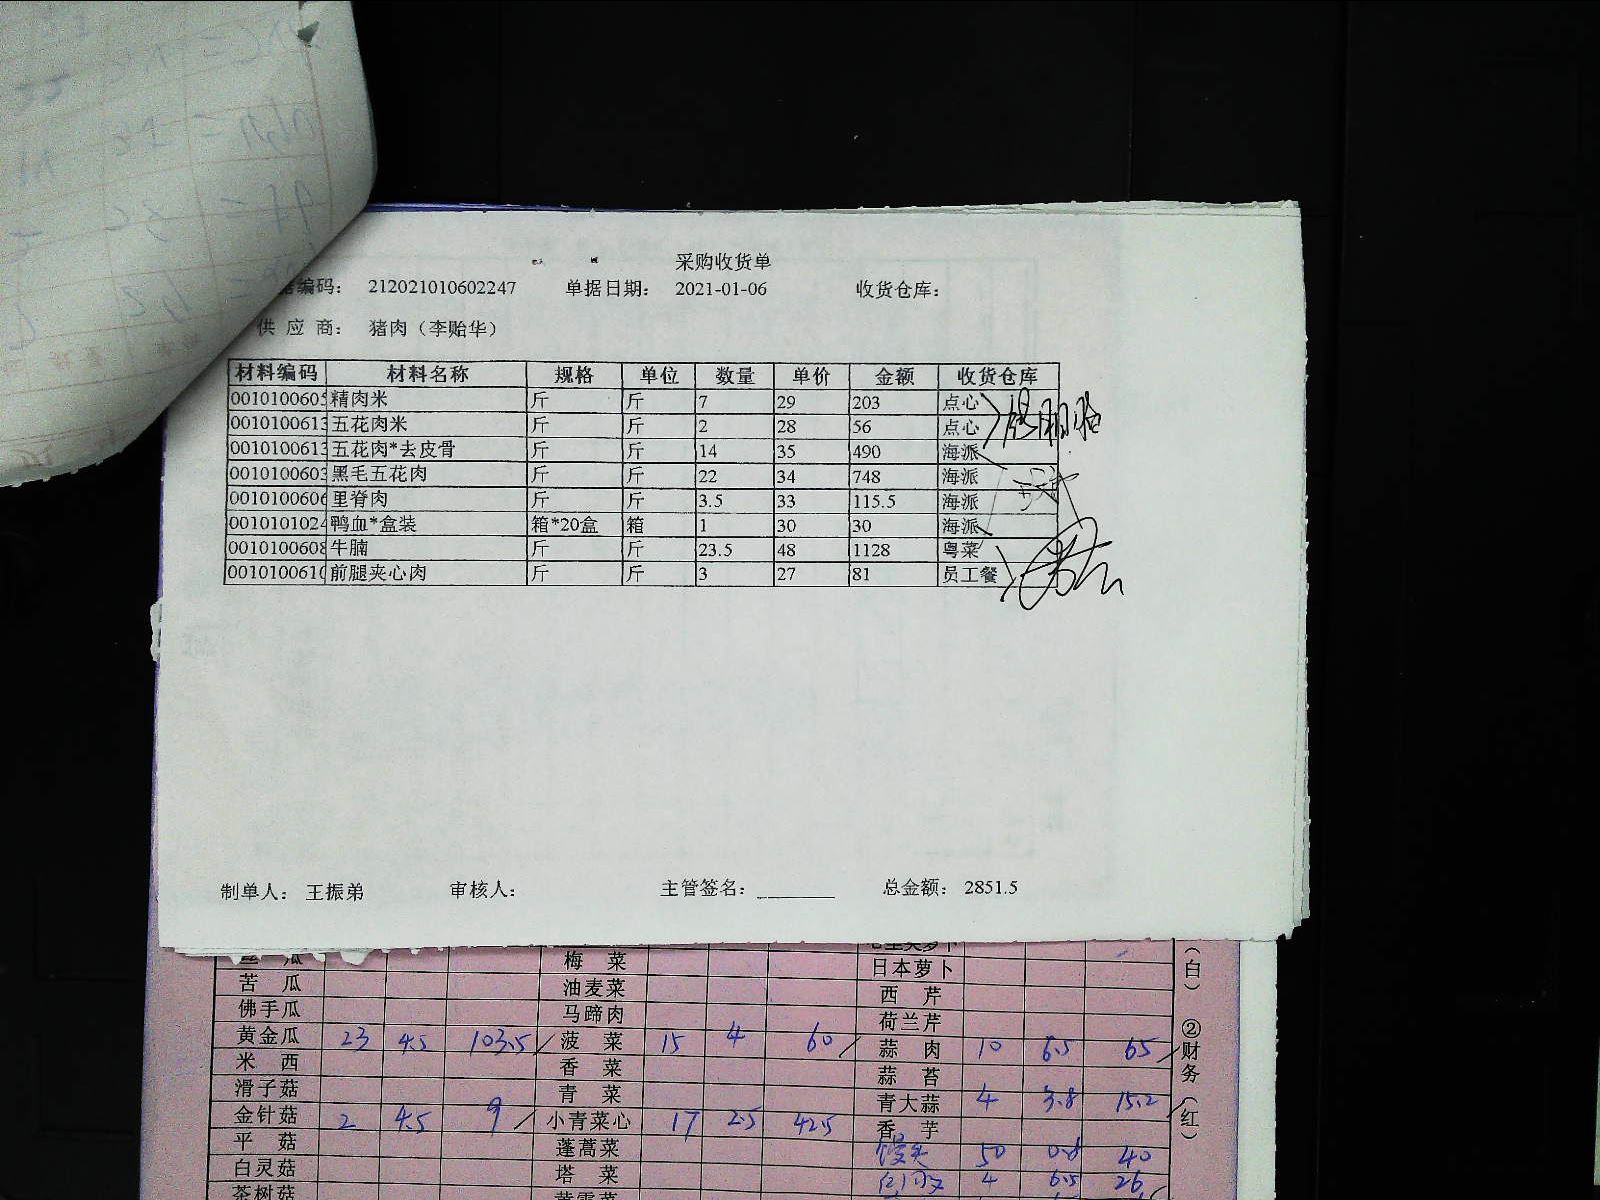 采购收货单
编码： 212021010602247 单据日期： 2021-01-06 收货仓库：
供 应 商： 猪肉（李贻华）
材料编码 材料名称 规格 单位 数量 单价 金额 收货仓库
0010100605 精肉米 斤 斤 7 29 203 点心
0010100613 五花肉米 斤 斤 2 28 56 点心
0010100613 五花肉*去皮骨 斤 斤 14 35 490 海派
0010100603 黑毛五花肉 斤 斤 22 34 748 海派
0010100606 里脊肉 斤 斤 3.5 33 115.5 海派
0010101024 鸭血*盒装 箱*20盒 箱 1 30 30 海派
0010100608 牛腩 斤 斤 23.5 48 1128 粤菜
0010100610 前腿夹心肉 斤 斤 3 27 81 员工餐
制单人： 王振弟 审核人： 主管签名： 总金额： 2851.5
梅 菜 日本萝卜
苦 瓜 油麦菜 西 芹
佛手瓜 马蹄肉 荷兰芹
黄金瓜 23 4.5 103.5 菠 菜 15 4 60 蒜 肉 10 6.5 65
米 西 香 菜 蒜 苔
滑子菇 青 菜 青大蒜 4 3.8 15.2
金针菇 2 4.5 9 小青菜心 17 2.5 42.5 香 芋
平 菇 蓬蒿菜 馒头 50 0.8 40
白灵菇 塔 菜 4 6.5 26
茶树菇
（白）
②财务（红）